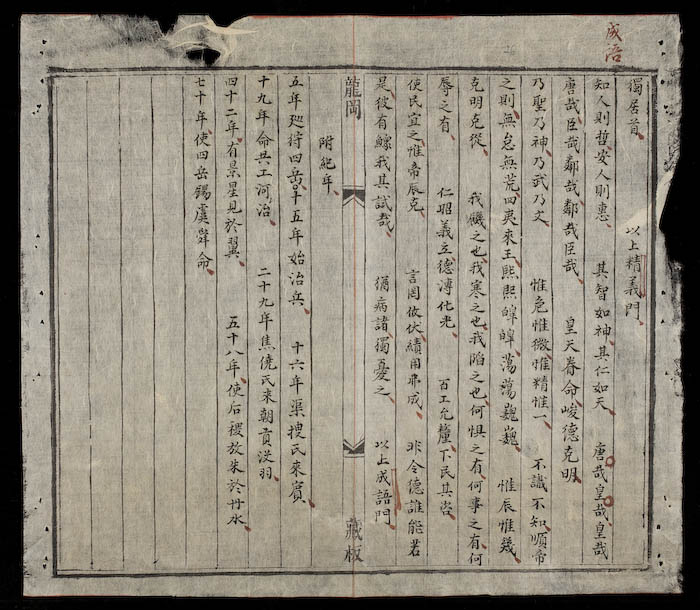 成語
獨居首 以上精義門
知人則哲安人則惠 其智如神其仁如天 唐哉皇哉皇哉
唐哉臣哉鄰哉鄰哉臣哉 皇天眷命峻德克明
乃聖乃神乃武乃文 惟危惟微惟精惟一 不識不知順帝
之則無怠無荒四夷來王熙熙皞皞蕩蕩巍巍 惟辰惟幾
克明克從 我饑之也我寒之也我陷之也何惧之有何事之有何
辱之有 仁昭義立德溥化光 百工允釐下民其咨
使民宜之惟帝辰克 言罔攸伏績用弗成 非令德誰能若
是彼有鰥我其試哉 猶病諸獨憂之 以上成語門
龍岡 藏板
附紀年
五年廵狩四岳十五年始治兵 十六年渠搜氏來賓
十九年命共工河治 二十九年焦僥氏來朝貢沒羽
四十二年有景星見於翼 五十八年使后稷放朱於丹水
七十年使四岳錫虞舜命